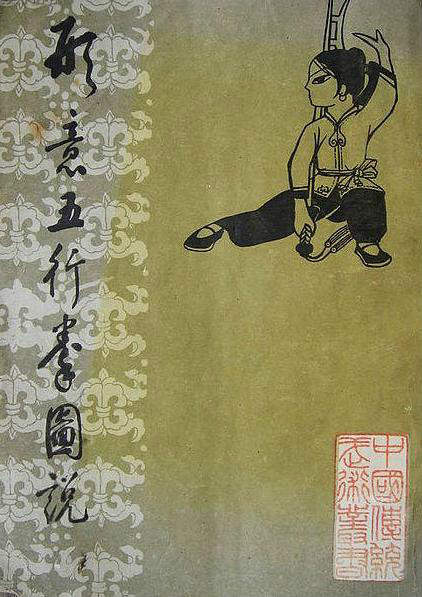 形意五行拳圖說
中國傳統
武術叢書